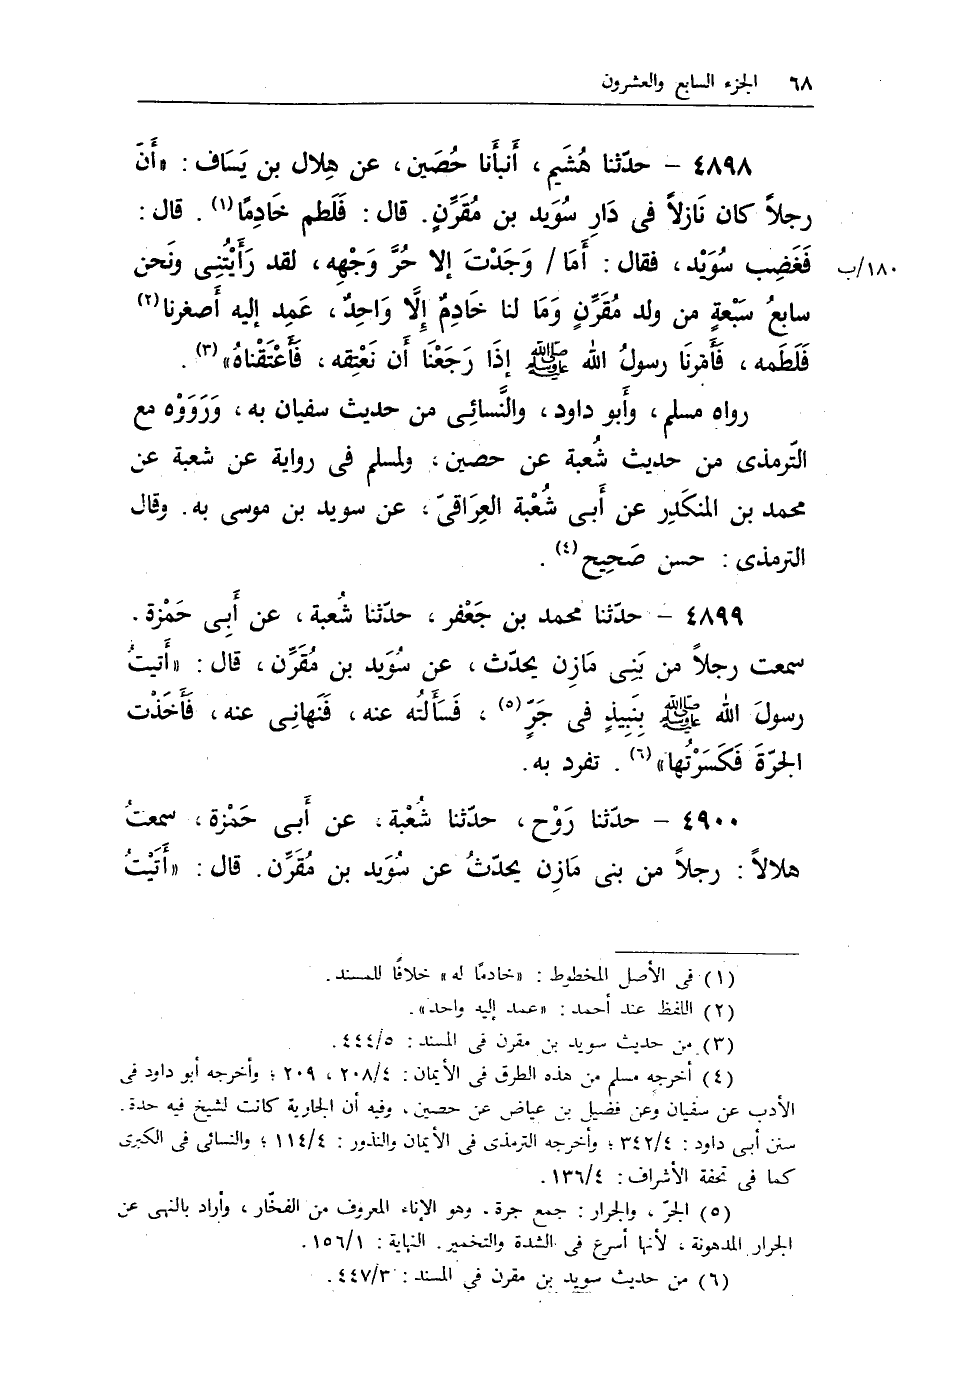 ٦٨ الجزء السابع والعشرون
٤٨٩٨ - حدّثنا هُشَيم، أَنبأَنا حُصَين، عن هِلال بن يَسَاف: «أَنَّ
رجلاً كان نَازِلاً فى دَارِ سُوَيد بن مُقَرِّنٍ. قال: فَلَطم خادِمًا(١). قال:
فَغَضِب سُوَيْد، فقال: أَمَا/ وَجَدْتَ إلا حُرَّ وَجْهِه، لقد رَأَيْتُنِى ونَحن
١٨٠/ب
سابعُ سَبْعةٍ من ولد مُقَرِّنٍ وَمَا لنا خَادِمٌ إِلَّا وَاحِدٌ، عَمِد إليه أصغرنا(٢)
فَلَطَمه، فَأَمَرنَا رسولُ الله ﷺ إذَا رَجَعْنَا أن نَعْتِقه، فَأَعْتَقْناهُ»(٣).
رواه مسلم، وأبو داود، والنَّسائِى من حديث سفيان به، وَرَوَوْه مع
التّرمذى من حديث شُعبة عن حصين، ولمسلم فى رواية عن شعبة عن
محمد بن المنكَدِر عن أَبى شُعْبة العِرَاقىّ، عن سويد بن موسى به. وقال
الترمذى: حسن صَحِيح(٤).
٤٨٩٩ - حدّثنا محمد بن جَعْفر، حدّثنا شُعبة، عن أَبِى حَمْزة.
سمعت رجلاً من بَنِى مَازِن يحدّث، عن سُوَيد بن مُقَرِّن، قال: «أَتيتُ
رسولَ الله ﷺ بِنَبِيذٍ فى جَرٍّ(٥)، فَسَأَلتُه عنه، فَنَهانِى عنه، فَأَخَذْت
الجرّةَ فَكَسَرْتُها»(٦). تفرد به.
٤٩٠٠ - حدّثنا رَوْح، حدّثنا شُعْبة، عن أَبى حَمْزة، سمعتُ
هلالاً: رجلاً من بنى مَازِن يحدّثُ عن سُوَيد بن مُقَرِّن. قال: «أَتَيْتُ
(١) فى الأصل المخطوط: «خادمًا له» خلافًا للمسند.
(٢) اللفظ عند أحمد: «عمد إليه واحد».
(٣) من حديث سويد بن مقرن فى المسند: ٤٤٤/٥.
(٤) أخرجه مسلم من هذه الطرق فى الأيمان: ٢٠٨/٤، ٢٠٩؛ وأخرجه أبو داود فى
الأدب عن سفيان وعن فضيل بن عياض عن حصين، وفيه أن الجارية كانت لشيخ فيه حدة.
سنن أبى داود: ٣٤٢/٤؛ وأخرجه الترمذى فى الأيمان والنذور: ١١٤/٤؛ والنسائى فى الكبرى
كما فى تحفة الأشراف: ١٣٦/٤.
(٥) الجَرّ، والجرار: جمع جرة. وهو الإناء المعروف من الفخّار، وأراد بالنهى عن
الجرار المدهونة، لأنها أسرع فى الشدة والتخمير. النهاية: ١٥٦/١.
(٦) من حديث سويد بن مقرن فى المسند: ٤٤٧/٣.